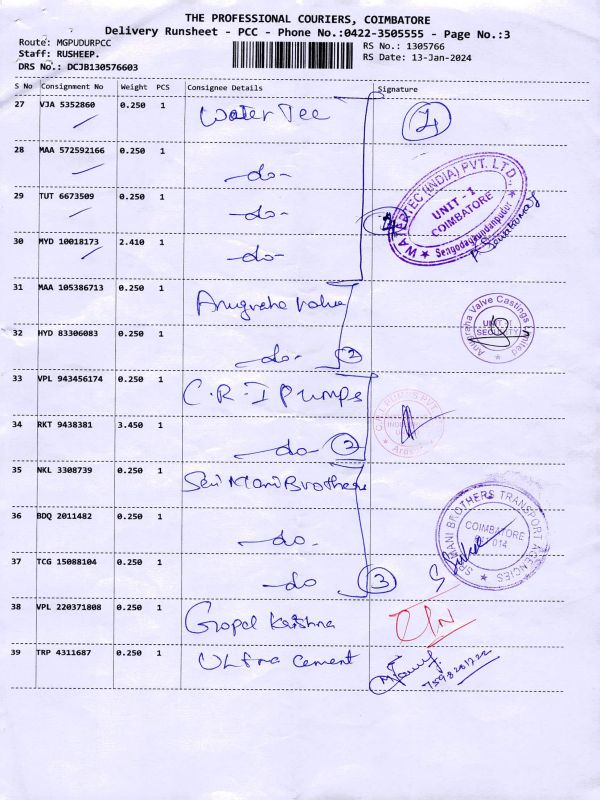 THE PROFESSIONAL COURIERS, COIMBATORE
Delivery Runsheet - PCC - Phone No.:0422-3505555 - Page No.:3
Route: MGPUDURPCC RS No.: 1305766
Staff: RUSHEEP. RS Date: 13-Jan-2024
DRS No.: DCJB130576603
S No Consignment No Weight PCS Consignee Details Signature
27 VJA 5352860 0.250 1 Water Tec 4
28 MAA 572592166 0.250 1 -do-
29 TUT 6673509 0.250 1 -do-
WATERTEC (INDIA) PVT. LTD.,
UNIT - 1
COIMBATORE
Sengodagoundanpudur
30 MYD 10018173 2.410 1 -do- 4
31 MAA 105386713 0.250 1 Anugraha valve
Anugraha Valve Castings Limited
UNIT
SECURITY
32 HYD 83306083 0.250 1 -do- 2
33 VPL 943456174 0.250 1 C.R.I Pumps
34 RKT 9438381 3.450 1 -do 2
35 NKL 3308739 0.250 1 Sri Mani Brothers
SRI MANI BROTHERS TRANSPORT AGENCIES
COIMBATORE
36 BDQ 2011482 0.250 1 -do.
37 TCG 15088104 0.250 1 -do 3
38 VPL 220371808 0.250 1 Gopal Krishna
39 TRP 4311687 0.250 1 Ultra cement